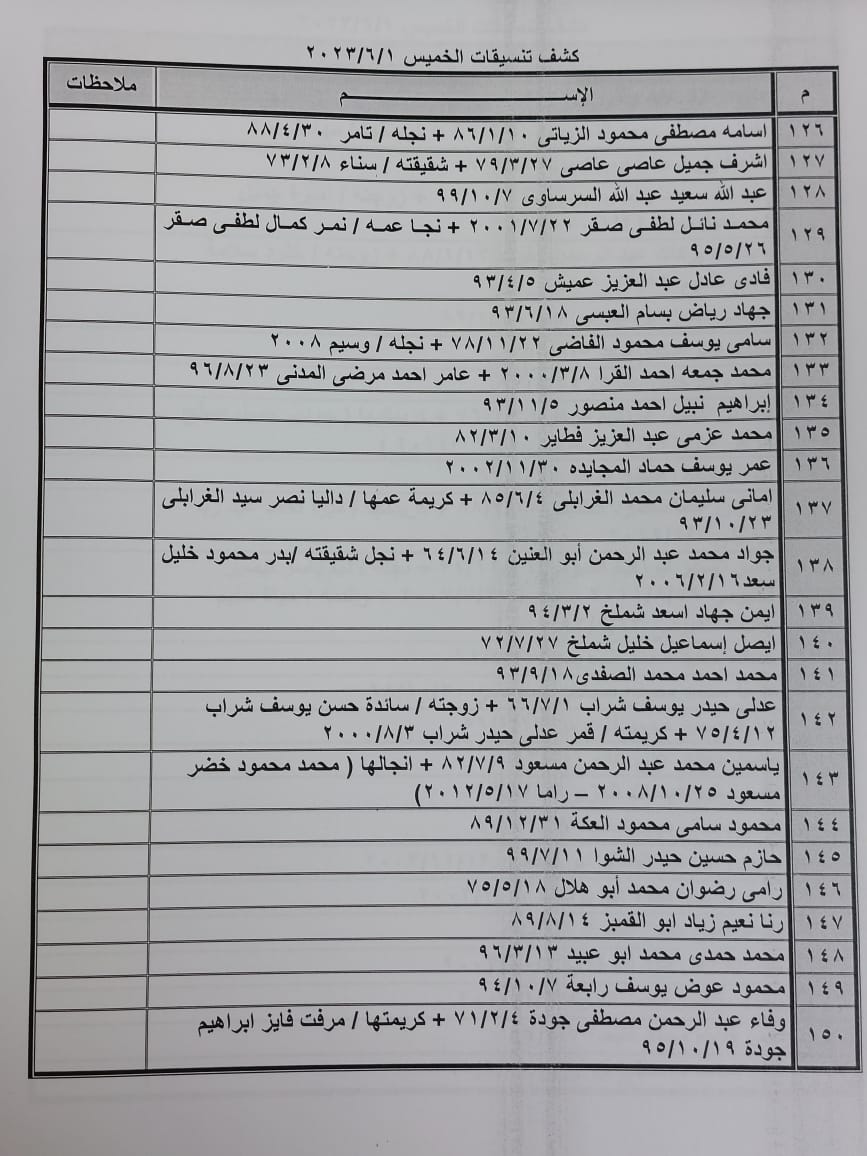 كشف تنسيقات الخميس ٢٠٢٣/٦/١
م الإســـــــــم ملاحظات
١٢٦ اسامه مصطفى محمود الزياتى ٨٦/١/١٠ + نجله / تامر ٨٨/٤/٣٠
١٢٧ اشرف جميل عاصى عاصى ٧٩/٣/٢٧ + شقيقته / سناء ٧٣/٢/٨
١٢٨ عبد الله سعيد عبد الله السرساوى ٩٩/١٠/٧
١٢٩ محمد نائل لطفى صقر ٢٠٠١/٧/٢٢ + نجا عمه / نمر كمال لطفى صقر
٩٥/٥/٢٦
١٣٠ فادى عادل عبد العزيز عميش ٩٣/٤/٥
١٣١ جهاد رياض بسام العبسى ٩٣/٦/١٨
١٣٢ سامى يوسف محمود القاضى ٧٨/١١/٢٢ + نجله / وسيم ٢٠٠٨
١٣٣ محمد جمعه احمد القرا ٢٠٠٠/٣/٨ + عامر احمد مرضى المدنى ٩٦/٨/٢٣
١٣٤ إبراهيم نبيل احمد منصور ٩٣/١١/٥
١٣٥ محمد عزمى عبد العزيز فطاير ٨٢/٣/١٠
١٣٦ عمر يوسف حماد المجايده ٢٠٠٢/١١/٣٠
١٣٧ امانى سليمان محمد الغرابلى ٨٥/٦/٤ + كريمة عمها / داليا نصر سيد الغرابلى
٩٣/١٠/٢٣
١٣٨ جواد محمد عبد الرحمن أبو العنين ٦٤/٦/١٤ + نجل شقيقته /بدر محمود خليل
سعد٢٠٠٦/٢/١٦
١٣٩ ايمن جهاد اسعد شملخ ٩٤/٣/٢
١٤٠ ايصل إسماعيل خليل شملخ ٧٢/٧/٢٧
١٤١ محمد احمد محمد الصفدى٩٣/٩/١٨
١٤٢ عدلى حيدر يوسف شراب ٦٦/٧/١ + زوجته / سائدة حسن يوسف شراب
٧٥/٤/١٢ + كريمته / قمر عدلى حيدر شراب ٢٠٠٠/٨/٣
١٤٣ ياسمين محمد عبد الرحمن مسعود ٨٢/٧/٩ + انجالها ( محمد محمود خضر
مسعود ٢٠٠٨/١٠/٢٥ – راما ٢٠١٢/٥/١٧)
١٤٤ محمود سامى محمود العكة ٨٩/١٢/٣١
١٤٥ حازم حسين حيدر الشوا ٩٩/٧/١١
١٤٦ رامى رضوان محمد أبو هلال ٧٥/٥/١٨
١٤٧ رنا نعيم زياد ابو القمبز ٨٩/٨/١٤
١٤٨ محمد حمدى محمد ابو عبيد ٩٦/٣/١٣
١٤٩ محمود عوض يوسف رابعة ٩٤/١٠/٧
١٥٠ وفاء عبد الرحمن مصطفى جودة ٧١/٢/٤ + كريمتها / مرفت فايز ابراهيم
جودة ٩٥/١٠/١٩